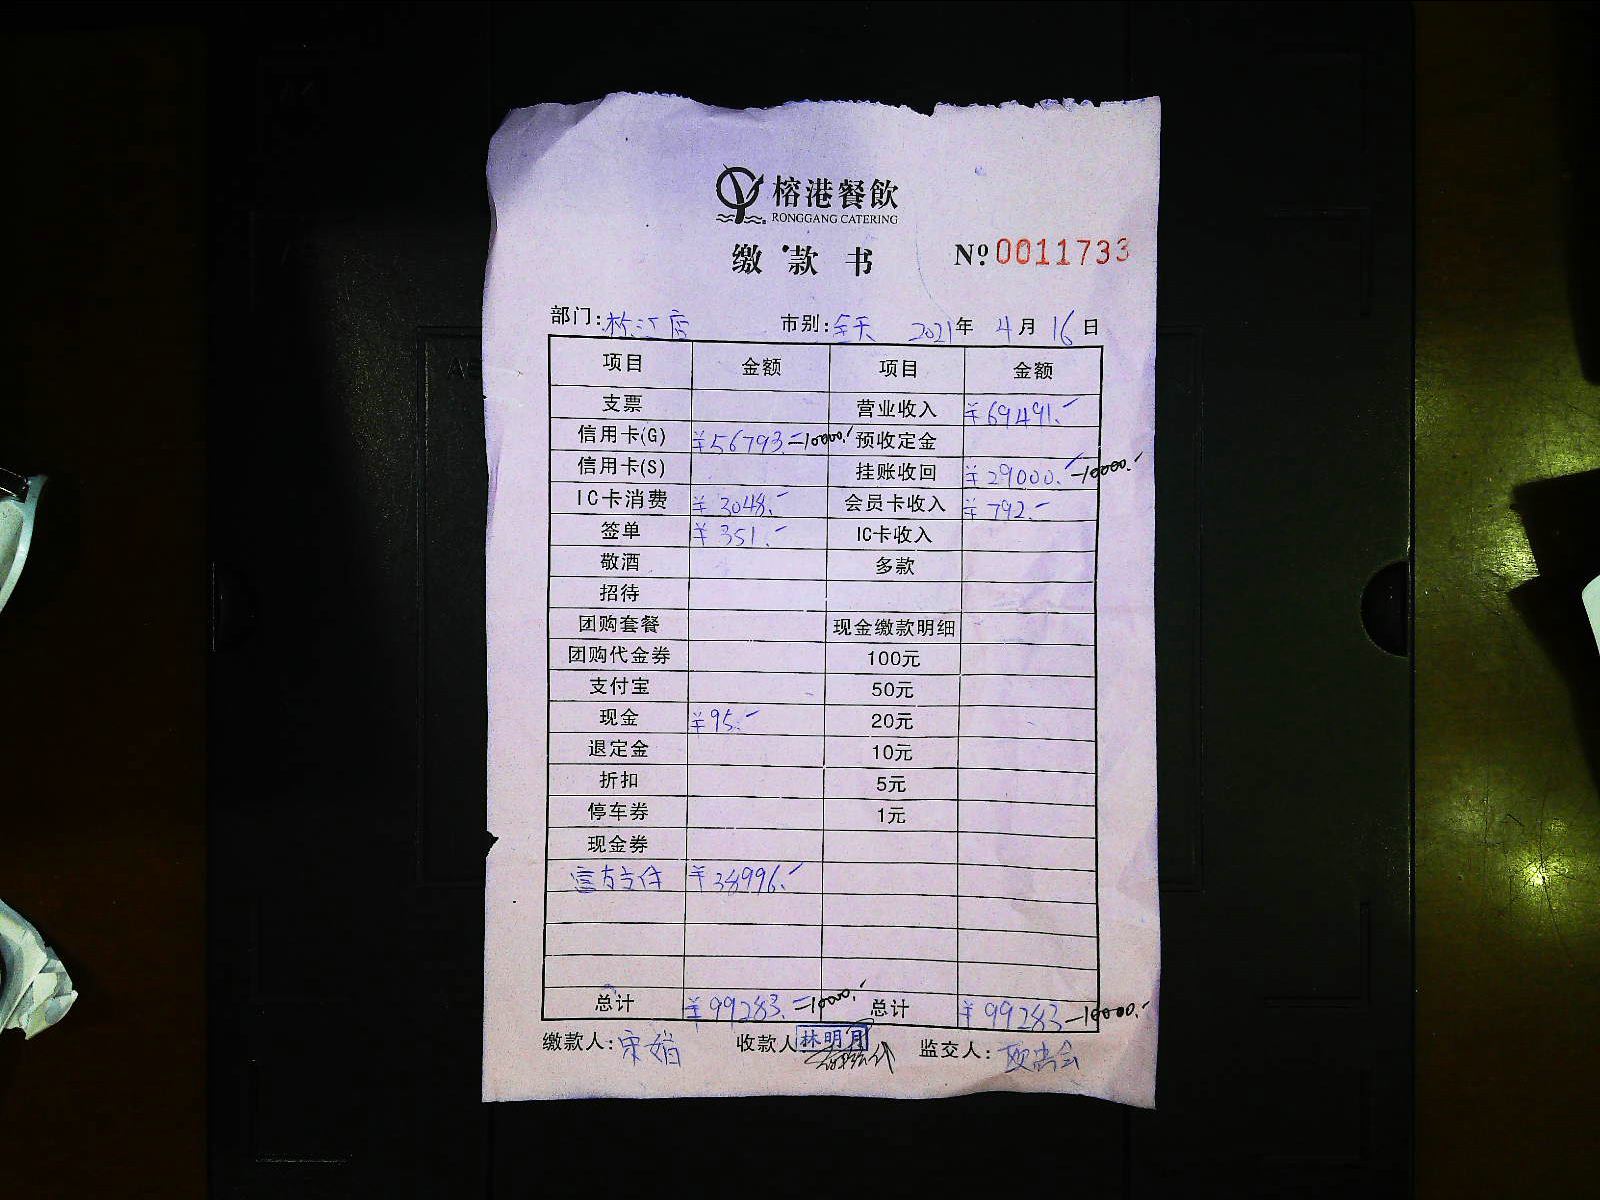 榕港餐飲
RONGGANG CATERING
缴款书 Nº 0011733
部门: 松江店 市别: 全天 2021年 4月 16日
项目 金额 项目 金额
支票 营业收入 ¥69491.-
信用卡(G) ¥56793.-10000.- 预收定金
信用卡(S) 挂账收回 ¥29000.-10000.-
IC卡消费 ¥3048.- 会员卡收入 ¥792.-
签单 ¥351.- IC卡收入
敬酒 多款
招待
团购套餐 现金缴款明细
团购代金券 100元
支付宝 50元
现金 ¥95.- 20元
退定金 10元
折扣 5元
停车券 1元
现金券
官方支付 ¥38996.-
总计 ¥99283.-10000.- 总计 ¥99283-10000.-
缴款人: 宋娟 收款人 林明月 监交人: